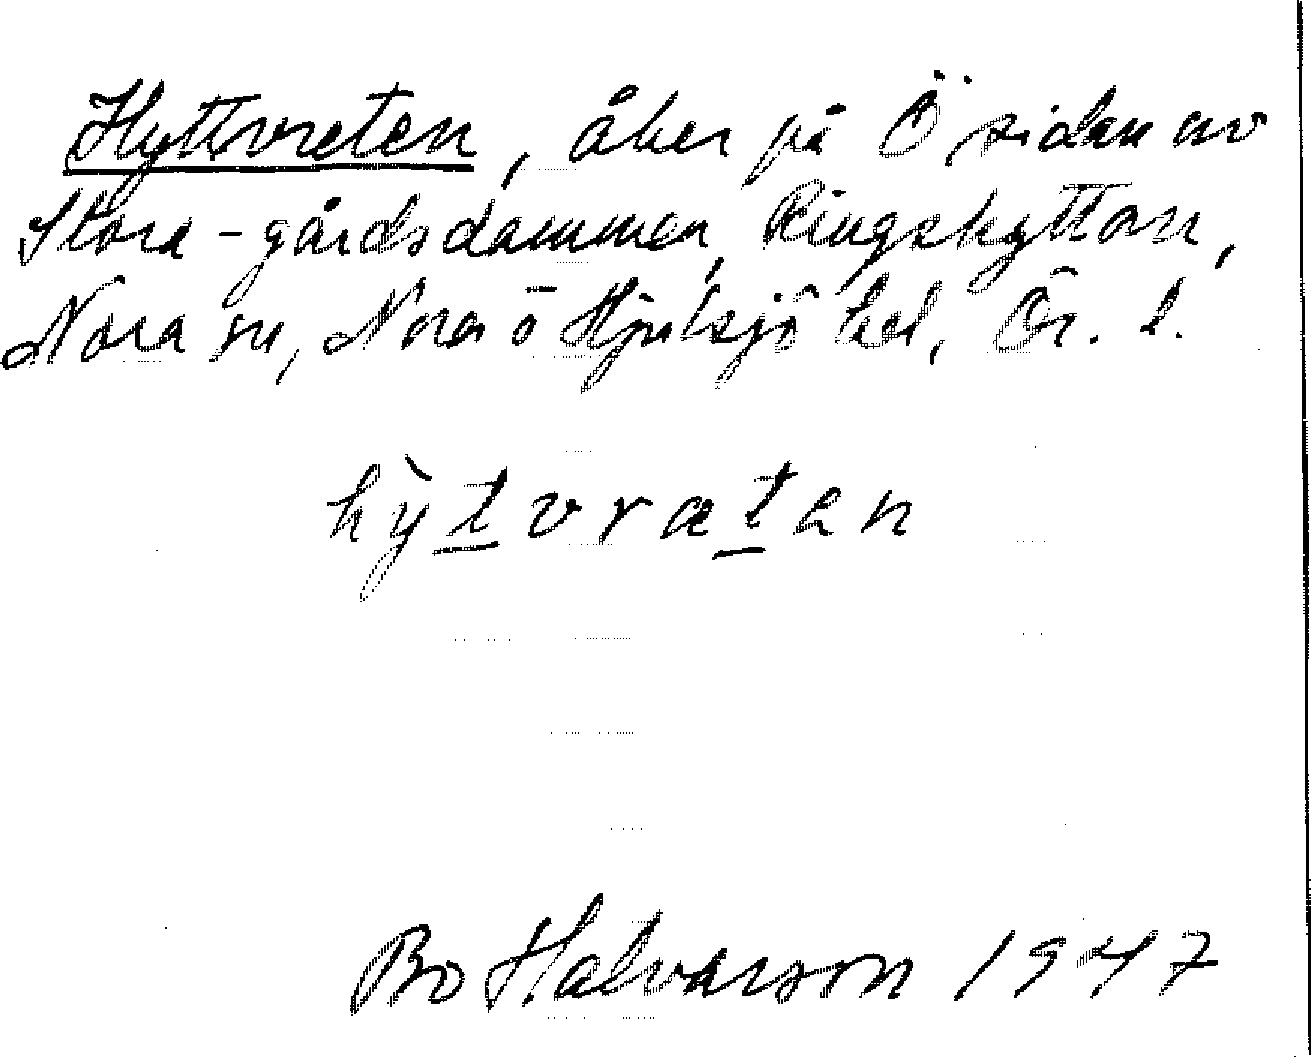 Hyttvreten, åker på Ö sidan av
Stora-gårdsdammen, Ringshyttan,
Nora sn, Nora o Hjulsjö bel, Ör. l.
hỳtvræten
Bo Halvarson 1947